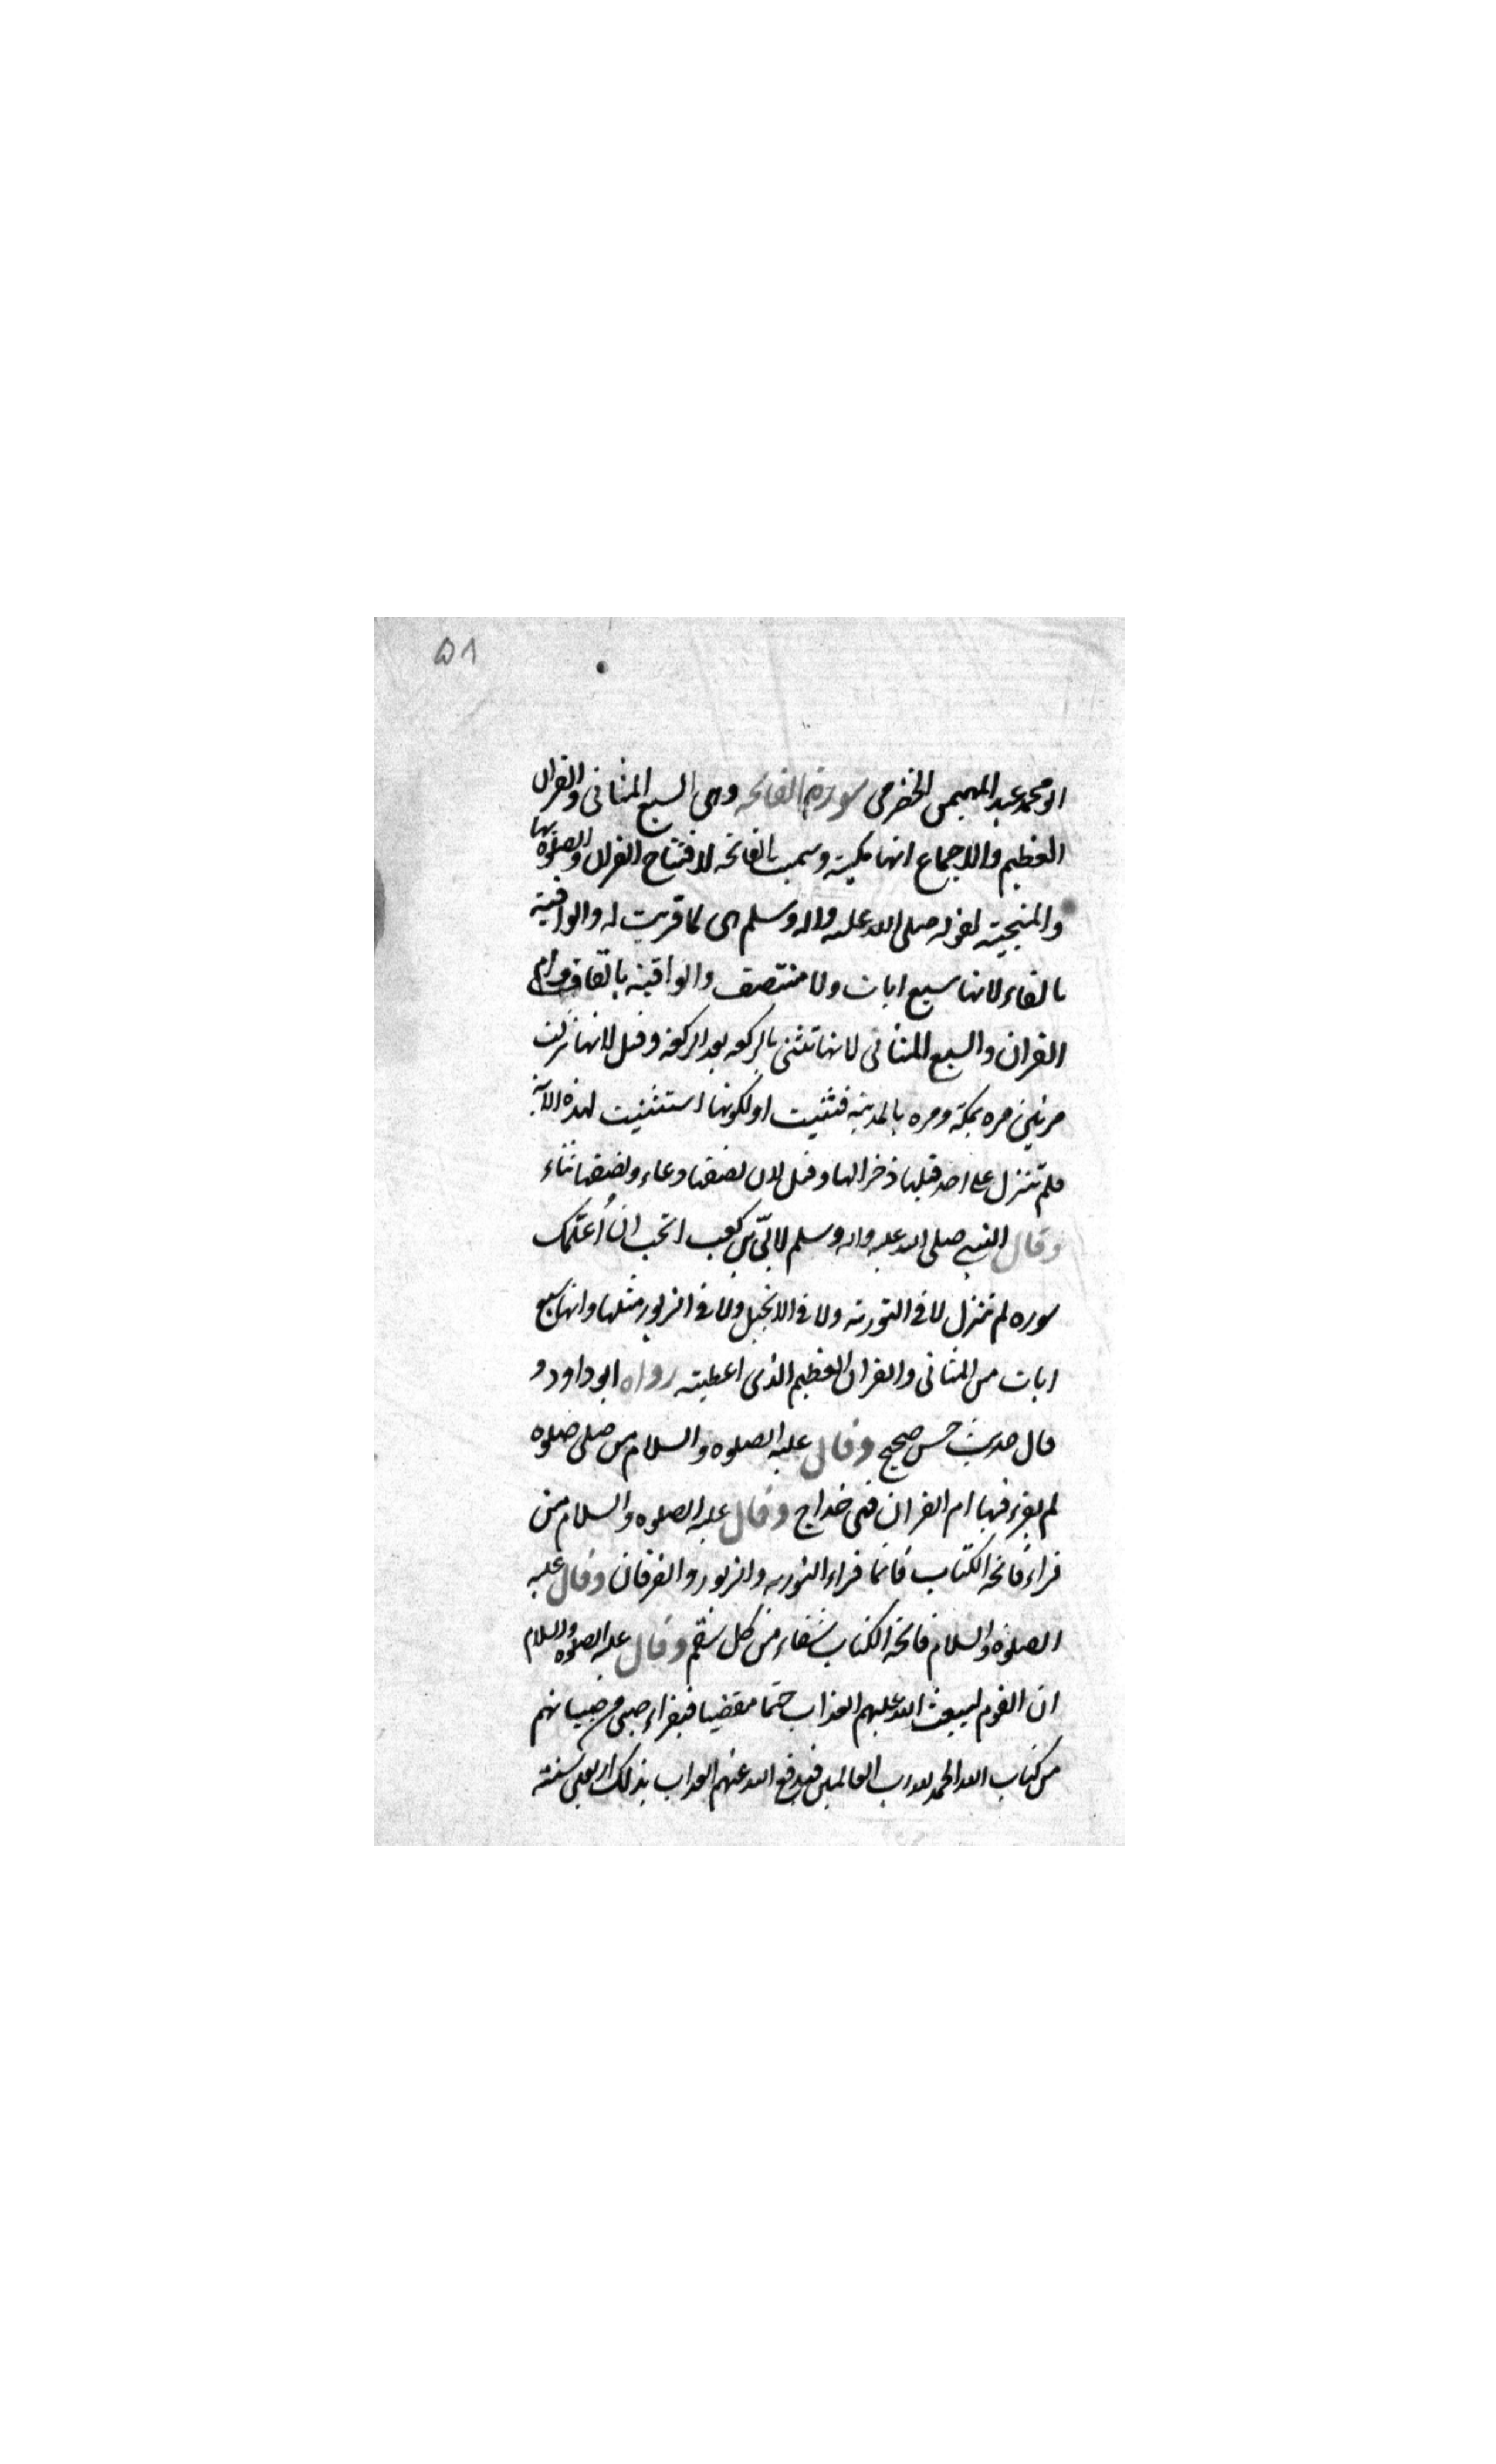 ٥٨
ابو محمد عبد المهيمن الحضرمى سورة الفاتحه وهى السبع المثانى والقران
العظيم والاجماع انها مكية وسميت بالفاتحه لافتتاح القران والصلوة بها
والمنجية لقوله صلى الله عليه واله وسلم هى لما قريت له والوافية
بالفاء لانها سبع ايات ولا منتصف والواقية بالقاف وام
القران والسبع المثانى لانها تثنى بالركعه بعد الركعة وقيل لانها نزلت
مرتين مره بمكة ومره بالمدينة فثنيت او لكونها استثنيت لهذه الامة
فلم تنزل على احد قبلها ذخرا لها وقيل لان نصفها دعاء ونصفها ثناء
وقال النبى صلى الله عليه واله وسلم لابىّ بن كعب اتحب ان اُعلّمك
سوره لم تنزل لا فى التورية ولا فى الانجيل ولا فى الزبور مثلها وانها سبع
ايات من المثانى والقران العظيم الذى اعطيته رواه ابو داود و
قال حديث حسن صحيح وقال عليه الصلوه والسلام من صلى صلوه
لم يقرء فيها ام القران فهى خداج وقال عليه الصلوه والسلام من
قراء فاتحة الكتاب فانما قراء التوريه والزبور والفرقان وقال عليه
الصلوة والسلام فاتحة الكتاب شفاء من كل سقم وقال عليه الصلوه والسلام
ان القوم ليبعث الله عليهم العذاب حتما مقضيا فيقراء صبى من صبيانهم
من كتاب الله الحمد لله رب العالمين فيدفع الله عنهم العذاب بذلك اربعين سنة